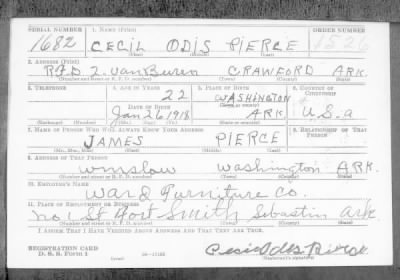 SERIAL NUMBER 1. NAME (Print) ORDER NUMBER
1682 CECIL ODIS PIERCE 1526
(First) (Middle) (Last)
2. ADDRESS (Print)
R.F.D 2. VanBuren CRAWFORD ARK.
(Number and street or R. F. D. number) (Town) (County) (State)
3. TELEPHONE 4. AGE IN YEARS 5. PLACE OF BIRTH 6. COUNTRY OF CITIZENSHIP
22 WASHINGTON
DATE OF BIRTH (Town or county)
Jan 26 1918 ARK. U.S.a
(Exchange) (Number) (Mo.) (Day) (Yr.) (State or country)
7. NAME OF PERSON WHO WILL ALWAYS KNOW YOUR ADDRESS 8. RELATIONSHIP OF THAT PERSON
JAMES PIERCE
(Mr., Mrs., Miss) (First) (Middle) (Last)
9. ADDRESS OF THAT PERSON
Winslow Washington ARK.
(Number and street or R. F. D. number) (Town) (County) (State)
10. EMPLOYER'S NAME
Ward Furniture Co.
11. PLACE OF EMPLOYMENT OR BUSINESS
no 1 St Fort Smith Sebastin Ark
(Number and street or R. F. D. number) (Town) (County) (State)
I AFFIRM THAT I HAVE VERIFIED ABOVE ANSWERS AND THAT THEY ARE TRUE.
REGISTRATION CARD
D. S. S. Form 1 16—17105 Cecil Odis Pierce
(Registrant's signature)